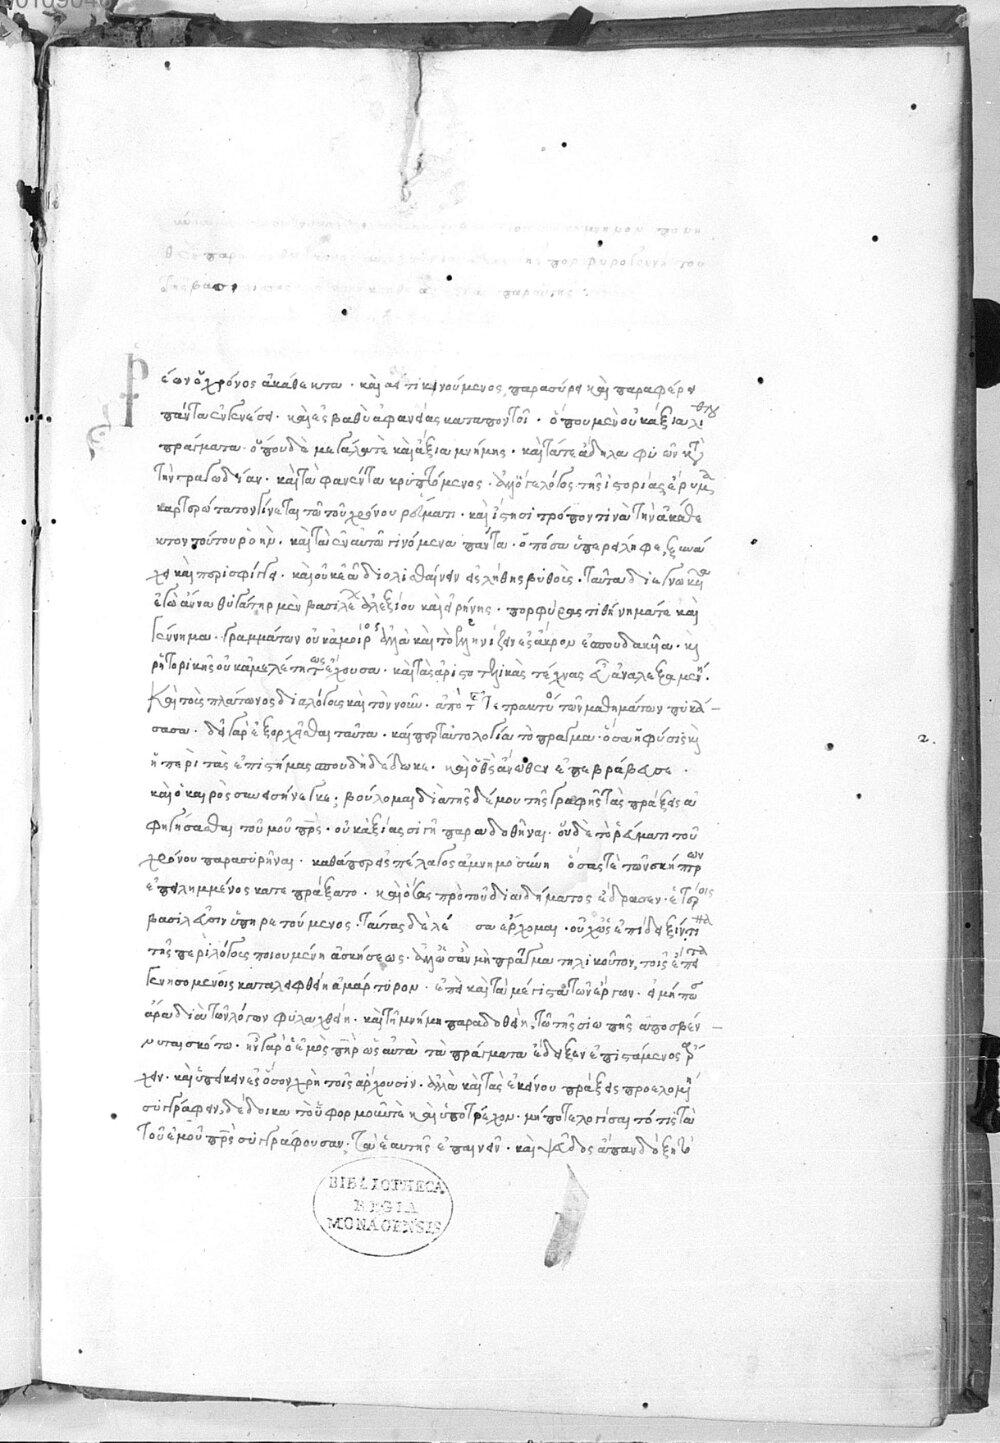 Ῥέων ὁ χρόνος ἀκάθεκτα· καὶ ἀεί τι κινούμενος, παρασύρει καὶ παραφέρει
πάντα ἐν γενέσει· καὶ ἐς βυθὸν ἀφανείας καταποντοῖ· ὅπου μὲν οὐκ ἄξια λόγου
πράγματα· ὅπου δὲ μεγάλά τε καὶ ἄξια μνήμης· καὶ τά τε ἄδηλα φύων κατὰ
τὴν τραγωδίαν· καὶ τὰ φανέντα κρυπτόμενος· ἀλλ' ὅ γε λόγος τῆς ἱστορίας ἔρυμα
καρτερώτατον γίνεται τῶ τοῦ χρόνου ῥεύματι· καὶ ἵστησι τρόπον τινὰ τὴν ἀκάθε
κτον τούτου ῥοήν· καὶ τὰ ἐν αὐτῶ γινόμενα πάντα· ὁπόσα ὑπερείληφε, ξυνέ
χει καὶ περισφίγγει· καὶ οὐκ ἐᾶ διολισθαίνειν εἰς λήθης βυθούς· ταῦτα διεγνωκυῖα
ἐγὼ ἄννα θυγάτηρ μὲν βασιλέων ἀλεξίου καὶ εἰρήνης· πορφύρας τιθήνημά τε καὶ
γέννημα· γραμμάτων οὐκ ἄμοιρος ἀλλὰ καὶ τὸ ἑλληνίζειν ἐς ἄκρον ἐσπουδακυῖα· καὶ
ῥητορικῆς οὐκ ἀμελετήτως ἔχουσα· καὶ τὰς ἀριστοτελικὰς τέχνας εὖ ἀναλεξαμένη·
καὶ τοὺς πλάτωνος διαλόγους καὶ τὸν νοῦν· ἀπὸ τῆς τετρακτύος τῶν μαθημάτων πυκά
σασα· δεῖ γὰρ ἐξορχεῖσθαι ταῦτα· καὶ περιαυτολογία τὸ πρᾶγμα· ὅσα ἡ φύσις καὶ
ἡ περὶ τὰς ἐπιστήμας σπουδὴ δέδωκε· καὶ ὁ θεὸς ἄνωθεν ἐπεβράβευσε·
καὶ ὁ καιρὸς συνεισήνεγκε· βούλομαι διὰ τῆσδέ μου τῆς γραφῆς τὰς πράξεις ἀ
φηγήσασθαι τοῦ μοῦ πρς· οὐκ ἀξίας σιγῇ παραδοθῆναι· οὐδὲ τῶ ῥεύματι τοῦ
χρόνου παρασυρῆναι· καθάπερ εἰς πέλαγος ἀμνημοσύνης ὅσας τε τῶν σκήπτρων
ἐπειλημμένος κατεπράξατο· καὶ ὅσας πρὸ τοῦ διαδήματος ἔδρασεν ἑτέροις
βασιλεῦσιν ὑπηρετούμενος· ταύτας δὲ λέ σα ἔρχομαι· οὐχ ὡς ἐπίδειξίν τινα
τῆς περὶ λόγους ποιουμένη ἀσκήσεως· ἀλλ' ὡς ἂν μὴ πρᾶγμα τηλικοῦτον, τοῖς ἔπειτα
γενησομένοις καταλειφθείη ἀμάρτυρον· ἐπεὶ καὶ τὰ μέγιστα τῶν ἔργων· εἰ μή πως
ἄρα διὰ τῶν λόγων φυλαχθείη· καὶ τῇ μνήμη παραδοθείη, τῶ τῆς σιωπῆς ἀποσβέν
νυται σκότω· ἦν γὰρ ὁ ἐμὸς πὴρ ὡς αὐτὰ τὰ πράγματα ἔδειξεν ἐπιστάμενος ἄρ
χειν· καὶ ὑπείκειν ἐς ὅσον χρὴ τοῖς ἄρχουσιν· ἀλλὰ καὶ τὰς ἐκείνου πράξεις προελομένη
συγγράφειν, δέδοικα τὸ ὑφορμοῦν τε καὶ ὑποτρέχον· μήποτε λογίσαιτό τις τὰ
τοῦ ἐμοῦ πρς συγγράφουσαν· τὰ ἑαυτῆς ἐπαινεῖν· καὶ ψεῦδος ἅπαν δόξῃ τὸ
BIBLIOTHECA
REGIA
MONACENSIS
2.